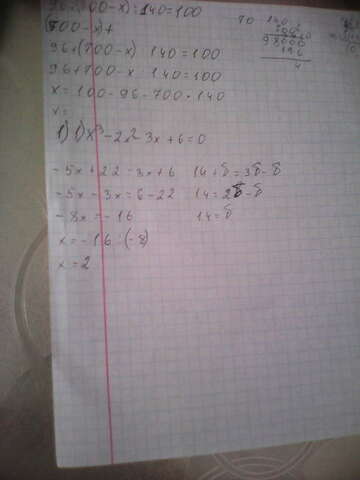 96+(700-x):140=100
(700-x)+
96+(700-x) 140=100
96+700-x 140=100
x=100-96-700·140
x=
1) 1) x³-2x² 3x+6=0
-5x+22=3x+6 14+δ=3δ-δ
-5x-3x=6-22 14=2δ-δ
-8x=-16 14=δ
x=-16:(-8)
x=2